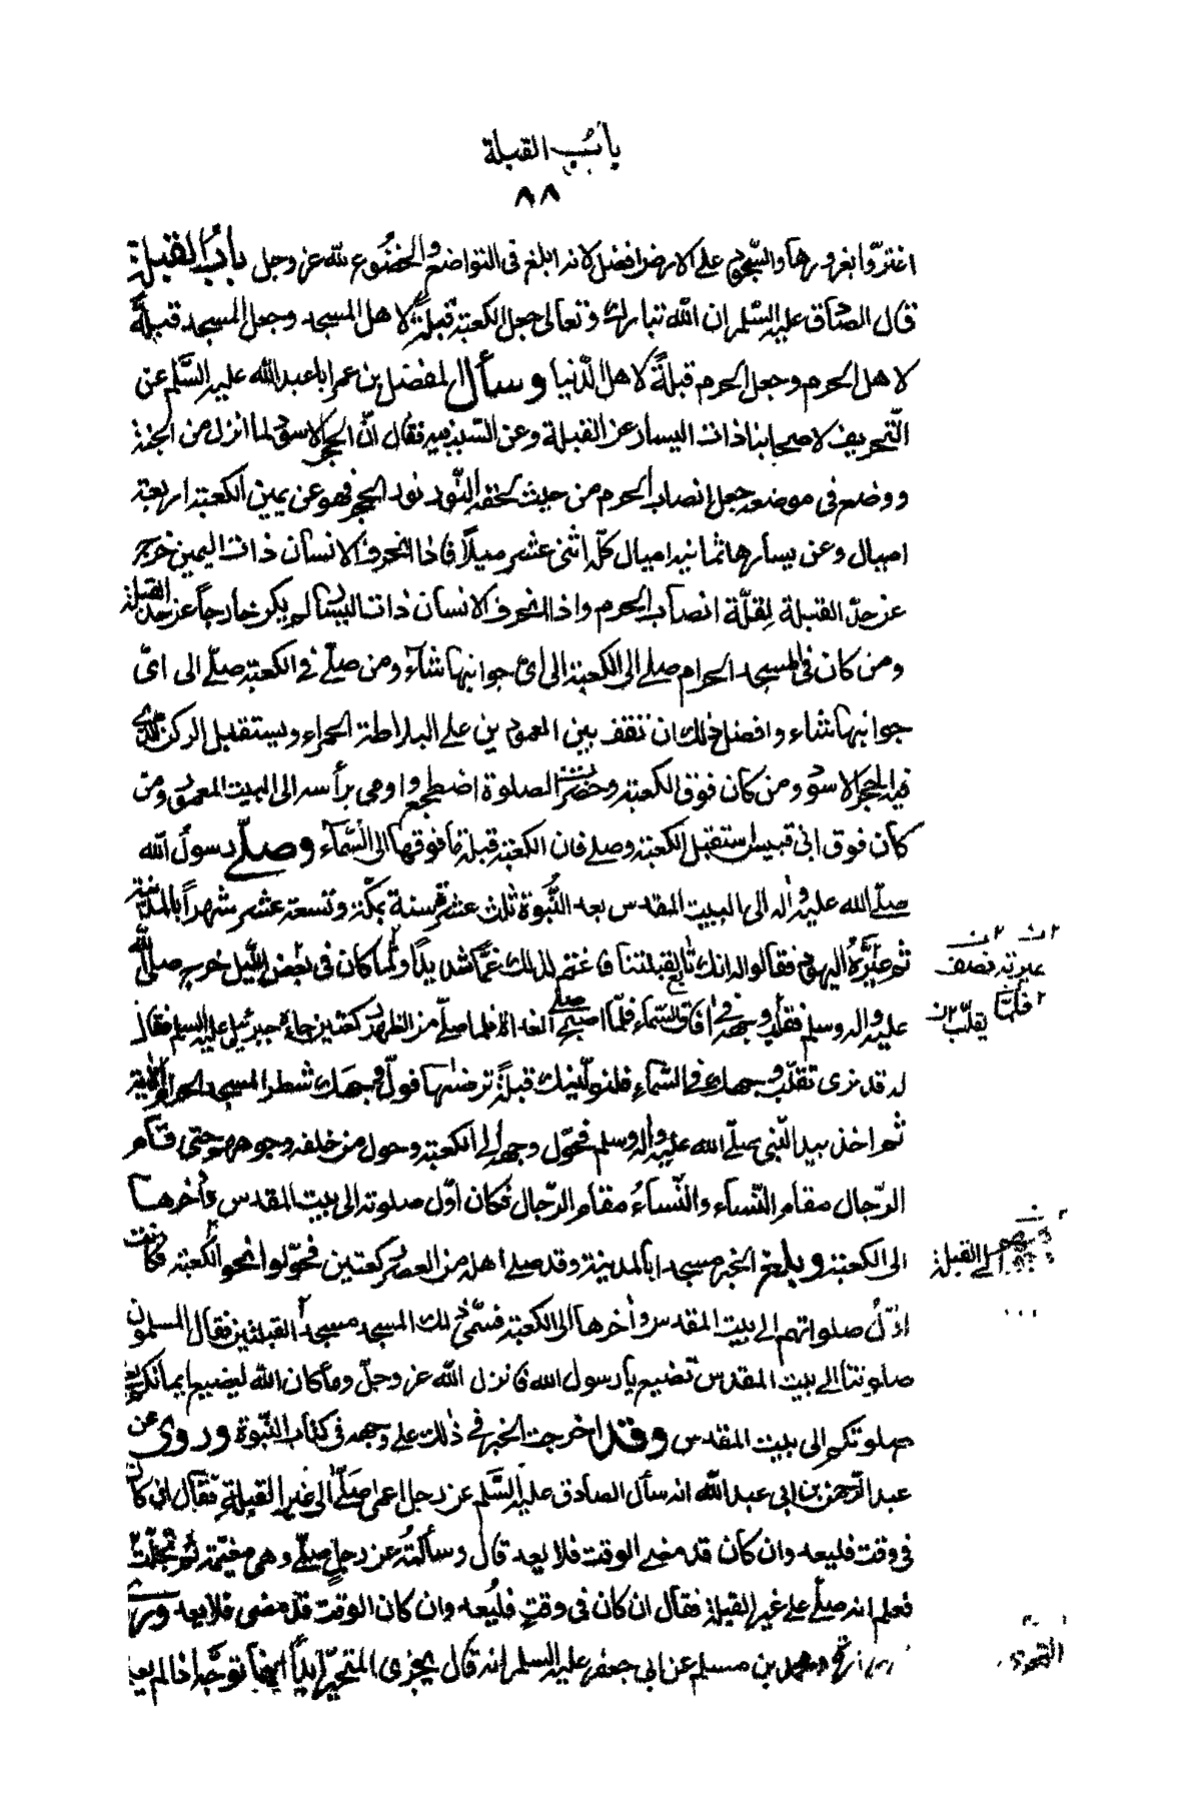 باب القبلة
٨٨
اغترّوا بغرورها والسّجود على الارض افضل لانه ابلغ فى التواضع والخضوع لله عز وجل باب القبلة
قال الصادق عليه السّلم ان الله تبارك وتعالى جعل الكعبة قبلةً لاهل المسجد وجعل المسجد قبلةً
لاهل الحرم وجعل الحرم قبلةً لاهل الدّنيا وسأل المفضل بن عمر ابا عبد الله عليه السّلم عن
التّحريف لاصحابنا ذات اليسار عن القبلة وعن السّبب فيه فقال انّ الحجر الاسود لما انزل من الجنة
ووضع فى موضعه جعل انصاب الحرم من حيث لحقه النّور نور الحجر فهو عن يمين الكعبة اربعة
اميال وعن يسارها ثمانية اميال كلّه اثنى عشر ميلاً فاذا انحرف الانسان ذات اليمين خرج
عن حدّ القبلة لقلّة انصاب الحرم واذا انحرف الانسان ذات اليسار لم يكن خارجاً عن حدّ القبلة
ومن كان فى المسجد الحرام صلى الى الكعبة الى اىّ جوانبها شآء ومن صلّى فى الكعبة صلّى الى اىّ
جوانبها شاء وافضل ذلك ان تقف بين العمودين على البلاطة الحمراء وتستقبل الركن الذى
فيه الحجر الاسود ومن كان فوق الكعبة وحضرت الصلوة اضطجع واومى برأسه الى البيت المعمور ومن
كان فوق ابى قبيس استقبل الكعبة وصلى فان الكعبة قبلة ما فوقها الى السّماء وصلّى رسول الله
صلّى الله عليه وآله الى البيت المقدس بعد النّبوة ثلث عشرة سنة بمكّة وتسعة عشر شهراً بالمدينة
ثم عيّرته اليهود فقالوا له انك تابع قبلتنا فاغتم لذلك غمّا شديداً ولمّا كان فى بعض اللّيل خرج صلى الله
عليه وآله وسلم فقلّب وجهه فى آفاق السّماء فلمّا اصبح صلى الغداة فلما صلّى من الظهر ركعتين جاءه جبرئيل عليه السلم فقال
له قد نرى تقلّب وجهك فى السّماء فلنولّينك قبلةً ترضٰها فولّ وجهك شطر المسجد الحرام الآية
ثم اخذ بيد النّبى صلّى الله عليه وآله وسلم فحوّل وجهه الى الكعبة وحول من خلفه وجوههم حتى قام
الرّجال مقام النّساء والنّساءُ مقام الرّجال فكان اوّل صلوته الى بيت المقدس وآخرها
الى الكعبة وبلغ الخبر مسجدا بالمدينة وقد صلى اهله من العصر ركعتين فحوّلوا نحو الكعبة فكانت
اوّلُ صلواتهم الى بيت المقدس وآخرها الى الكعبة فسمّى ذلك المسجد مسجد القبلتين فقال المسلمون
صلوتنا الى بيت المقدس تضيع يا رسول الله فانزل الله عز وجلّ وما كان الله ليضيع ايمانكم يعنى
صلوتكم الى بيت المقدس وقد اخرجت الخبر فى ذلك على وجهه فى كتاب النّبوة وروى عن
عبد الرّحمن بن ابى عبد الله انه سأل الصادق عليه السّلم عن رجل اعمى صلّى الى غير القبلة فقال ان كان
فى وقت فليعد وان كان قد مضى الوقت فلا يعد قال وسألتُه عن رجل صلّى وهى مغيّمة ثم تجلّت
فعلم انه صلّى على غير القبلة فقال ان كان فى وقتٍ فليُعد وان كان الوقت قد مضى فلا يعد وروى
زرارة ومحمد بن مسلم عن ابى جعفر عليه السلم انه قال يجزى المتحيّر ابداً اينما توجّه اذا لم يعلم
فلمّا
يقلّب
الى القبلة